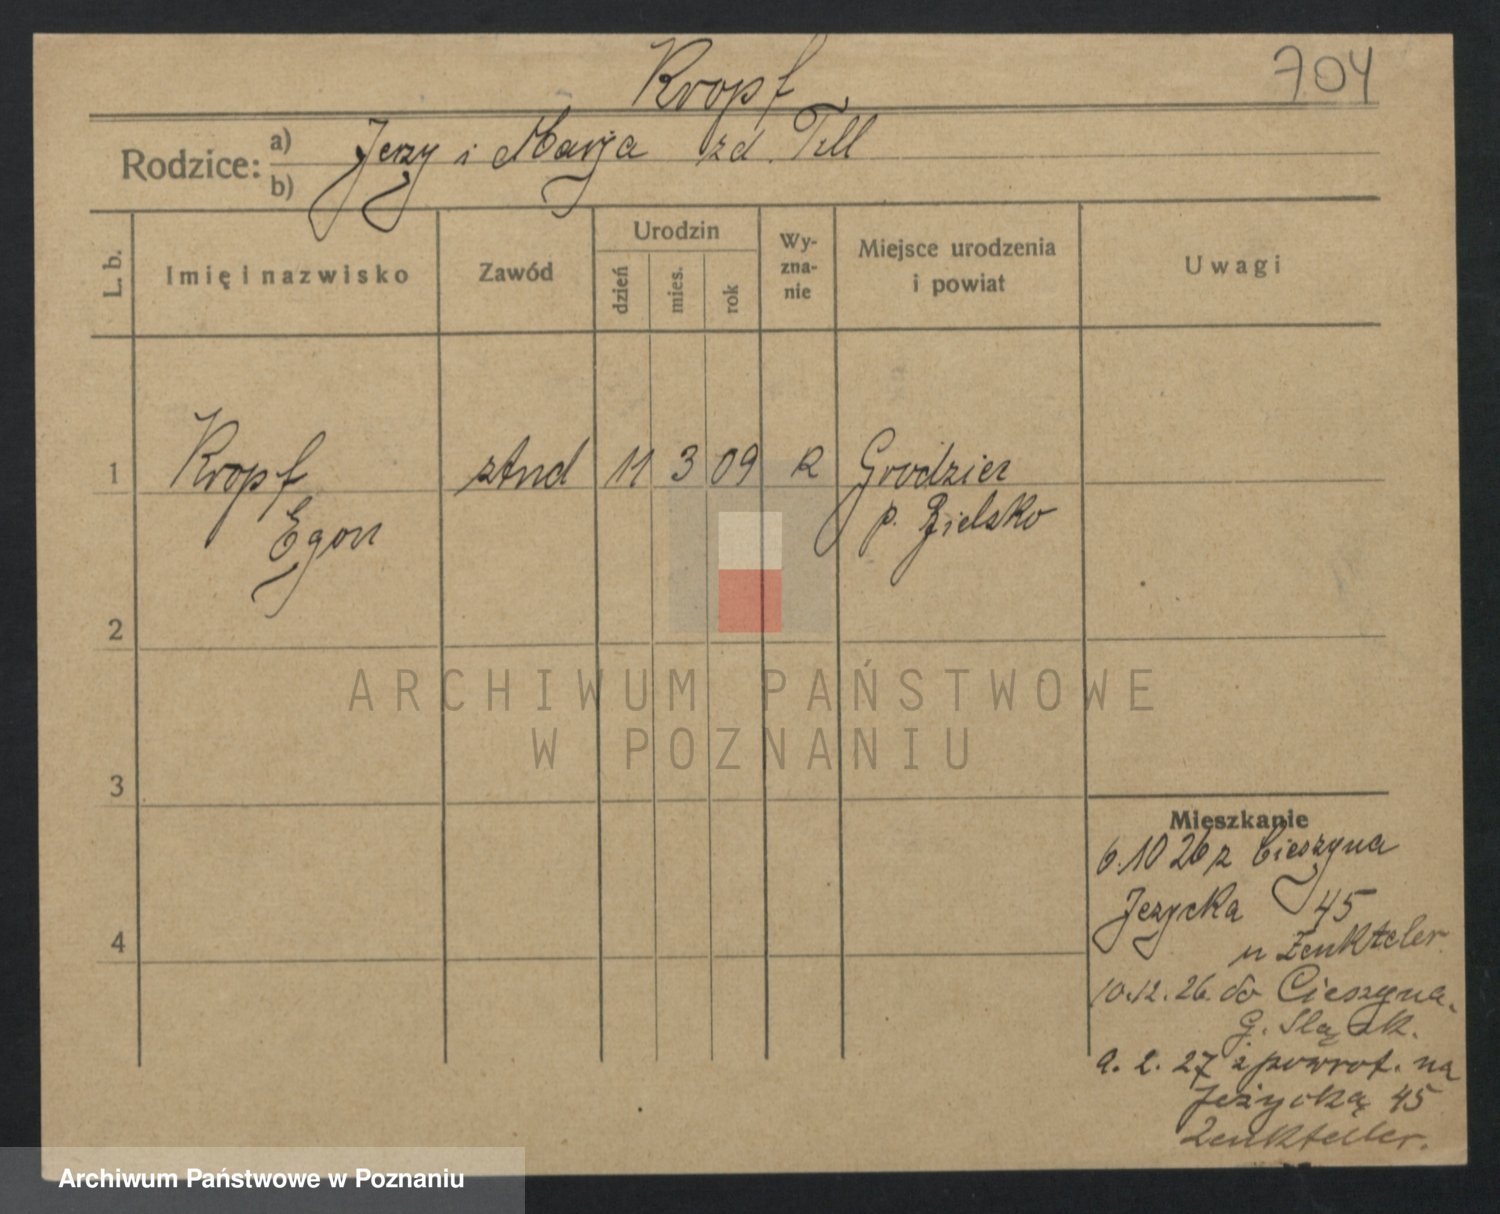 Kropf
704
Rodzice: a) Jerzy i Marja zd. Tell
b)
L. b. Imię i nazwisko Zawód Urodzin dzień mies. rok Wyznanie Miejsce urodzenia i powiat Uwagi
1 Kropf stud 11 3 09 R Grodziec
Egon p. Bielsko
2
ARCHIWUM PAŃSTWOWE
W POZNANIU
3
4
Mieszkanie
6.10 26 z Cieszyna
Jezycka 45
u Zenkteler
10.12.26. do Cieszyna.
G. Sląsk.
9. 2. 27 z powrot. na
Jeżycką 45
Zenkteller.
Archiwum Państwowe w Poznaniu